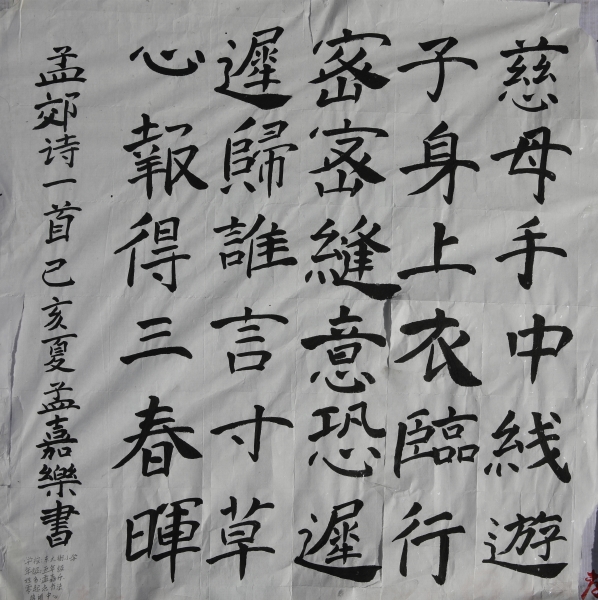 慈母手中线遊
子身上衣臨行
密密縫意恐遲
遲歸誰言寸草
心報得三春暉
孟郊诗一首己亥夏孟嘉樂書